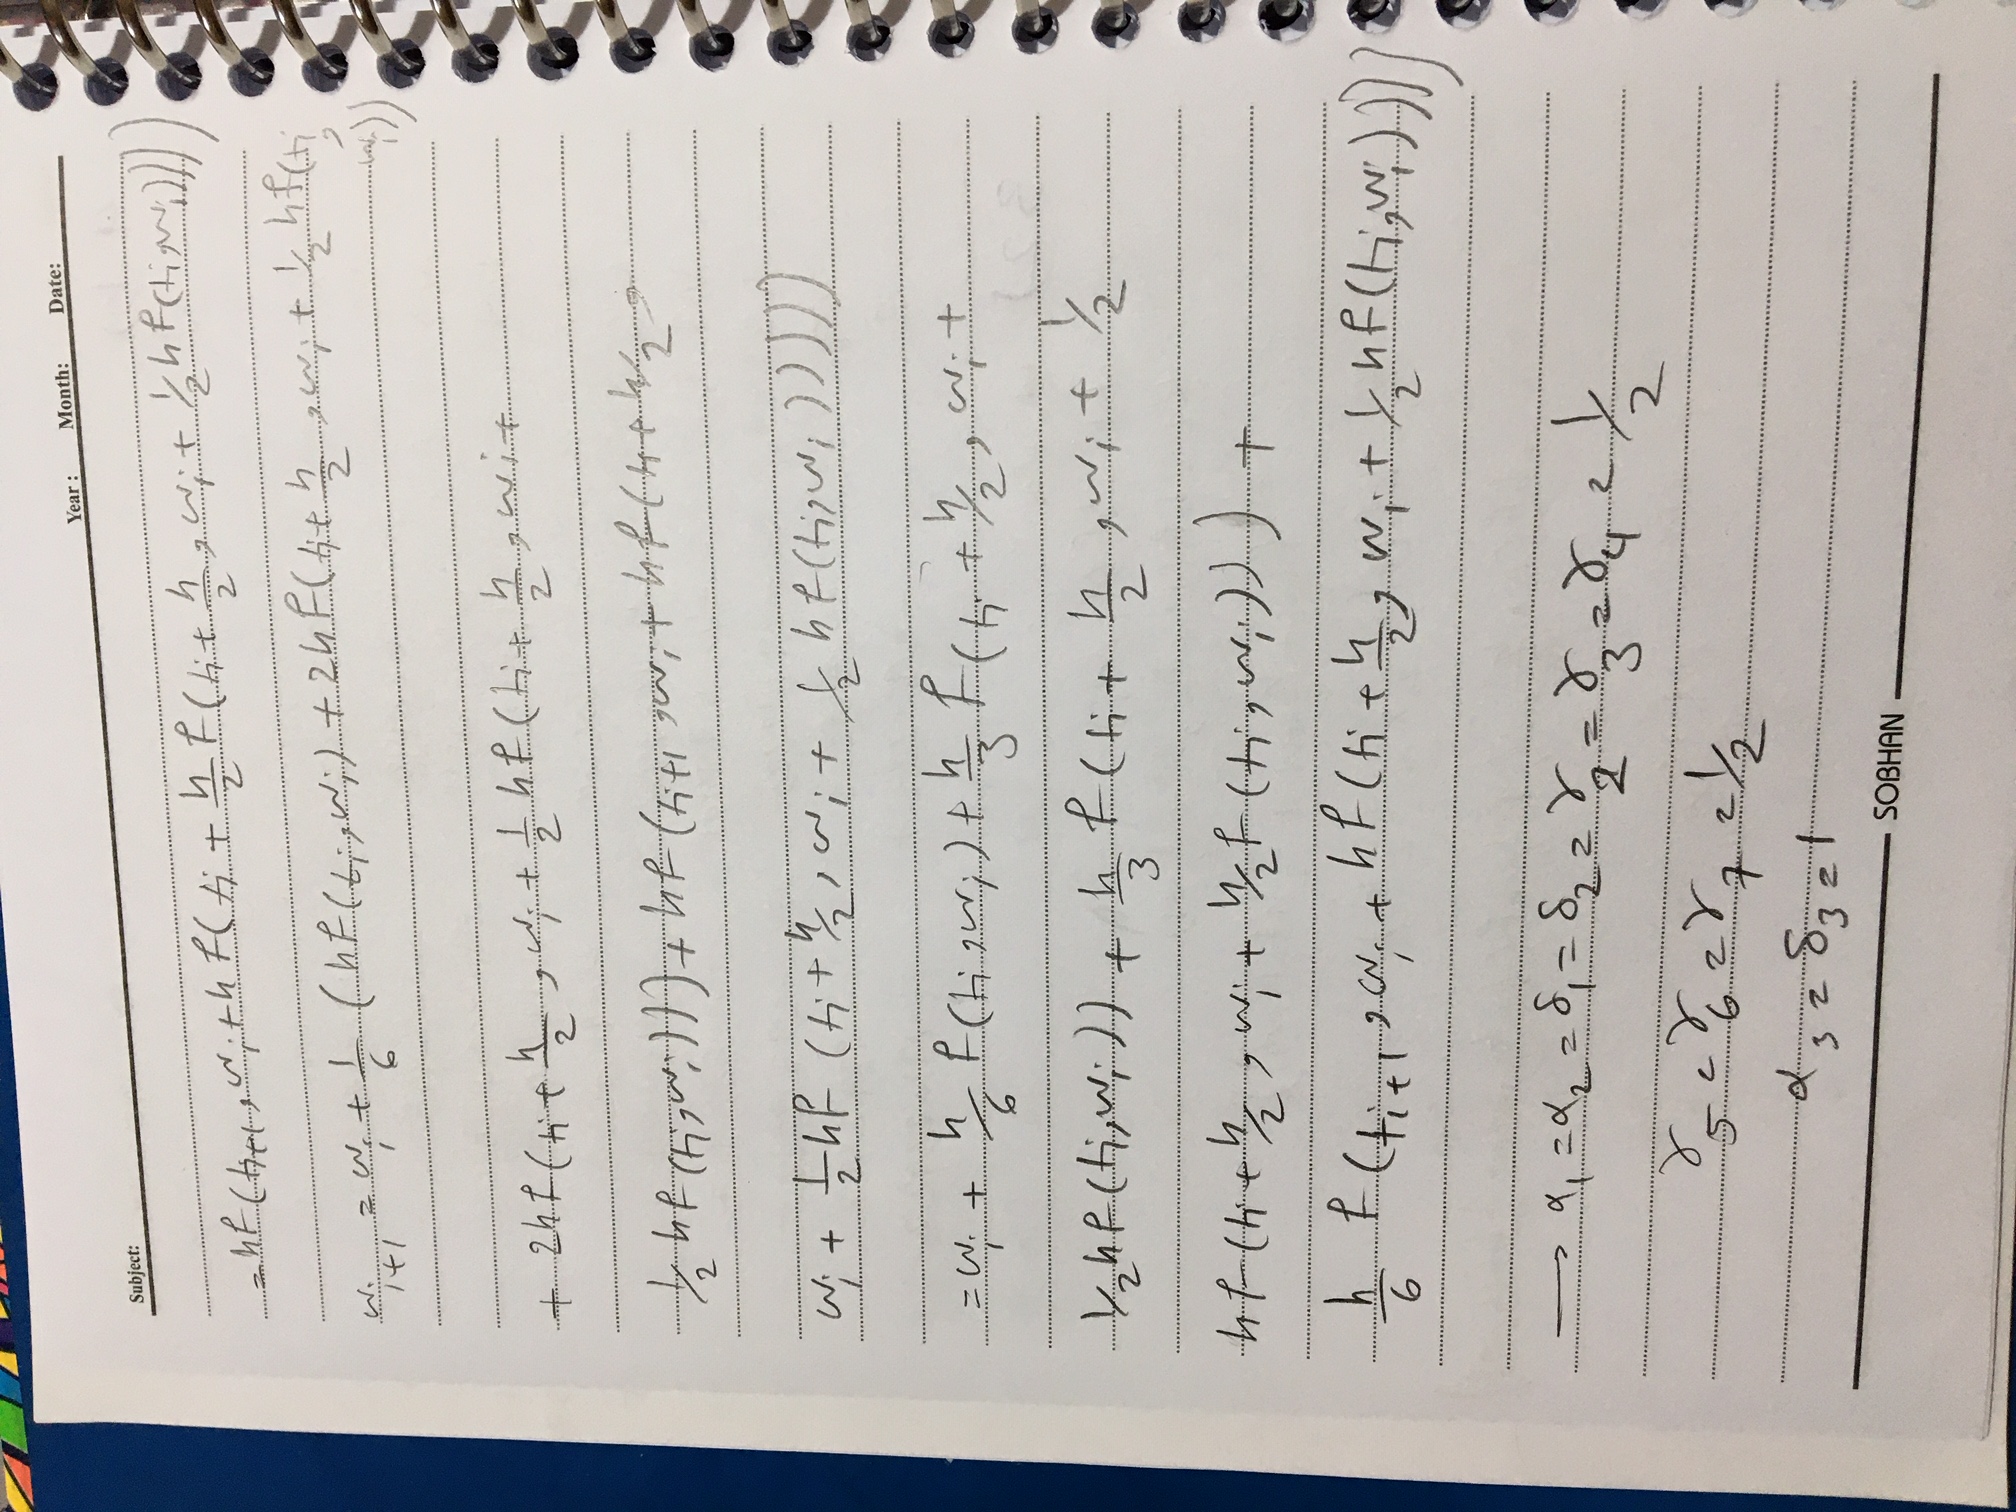 Subject: Year: Month: Date:
= hf(ti+1, wi + hf(ti + h/2 f(ti + h/2, wi + 1/2 hf(ti, wi))))
wi+1 = wi + 1/6 (hf(ti, wi) + 2hf(ti + h/2, wi + 1/2 hf(ti, wi))
+ 2hf(ti + h/2, wi + 1/2 hf(ti + h/2, wi +
1/2 hf(ti, wi)))) + hf(ti+1, wi + hf(ti + h/2,
wi + 1/2 hf(ti + h/2, wi + 1/2 hf(ti, wi)))))
= wi + h/6 f(ti, wi) + h/3 f(ti + h/2, wi +
1/2 hf(ti, wi)) + h/3 f(ti + h/2, wi + 1/2
hf(ti + h/2, wi + h/2 f(ti, wi))) +
h/6 f(ti+1, wi + hf(ti + h/2, wi + 1/2 hf(ti, wi))))
→ α1 = α2 = δ1 = δ2 = γ2 = γ3 = γ4 = 1/2
γ5 = γ6 = γ7 = 1/2
α3 = δ3 = 1
SOBHAN